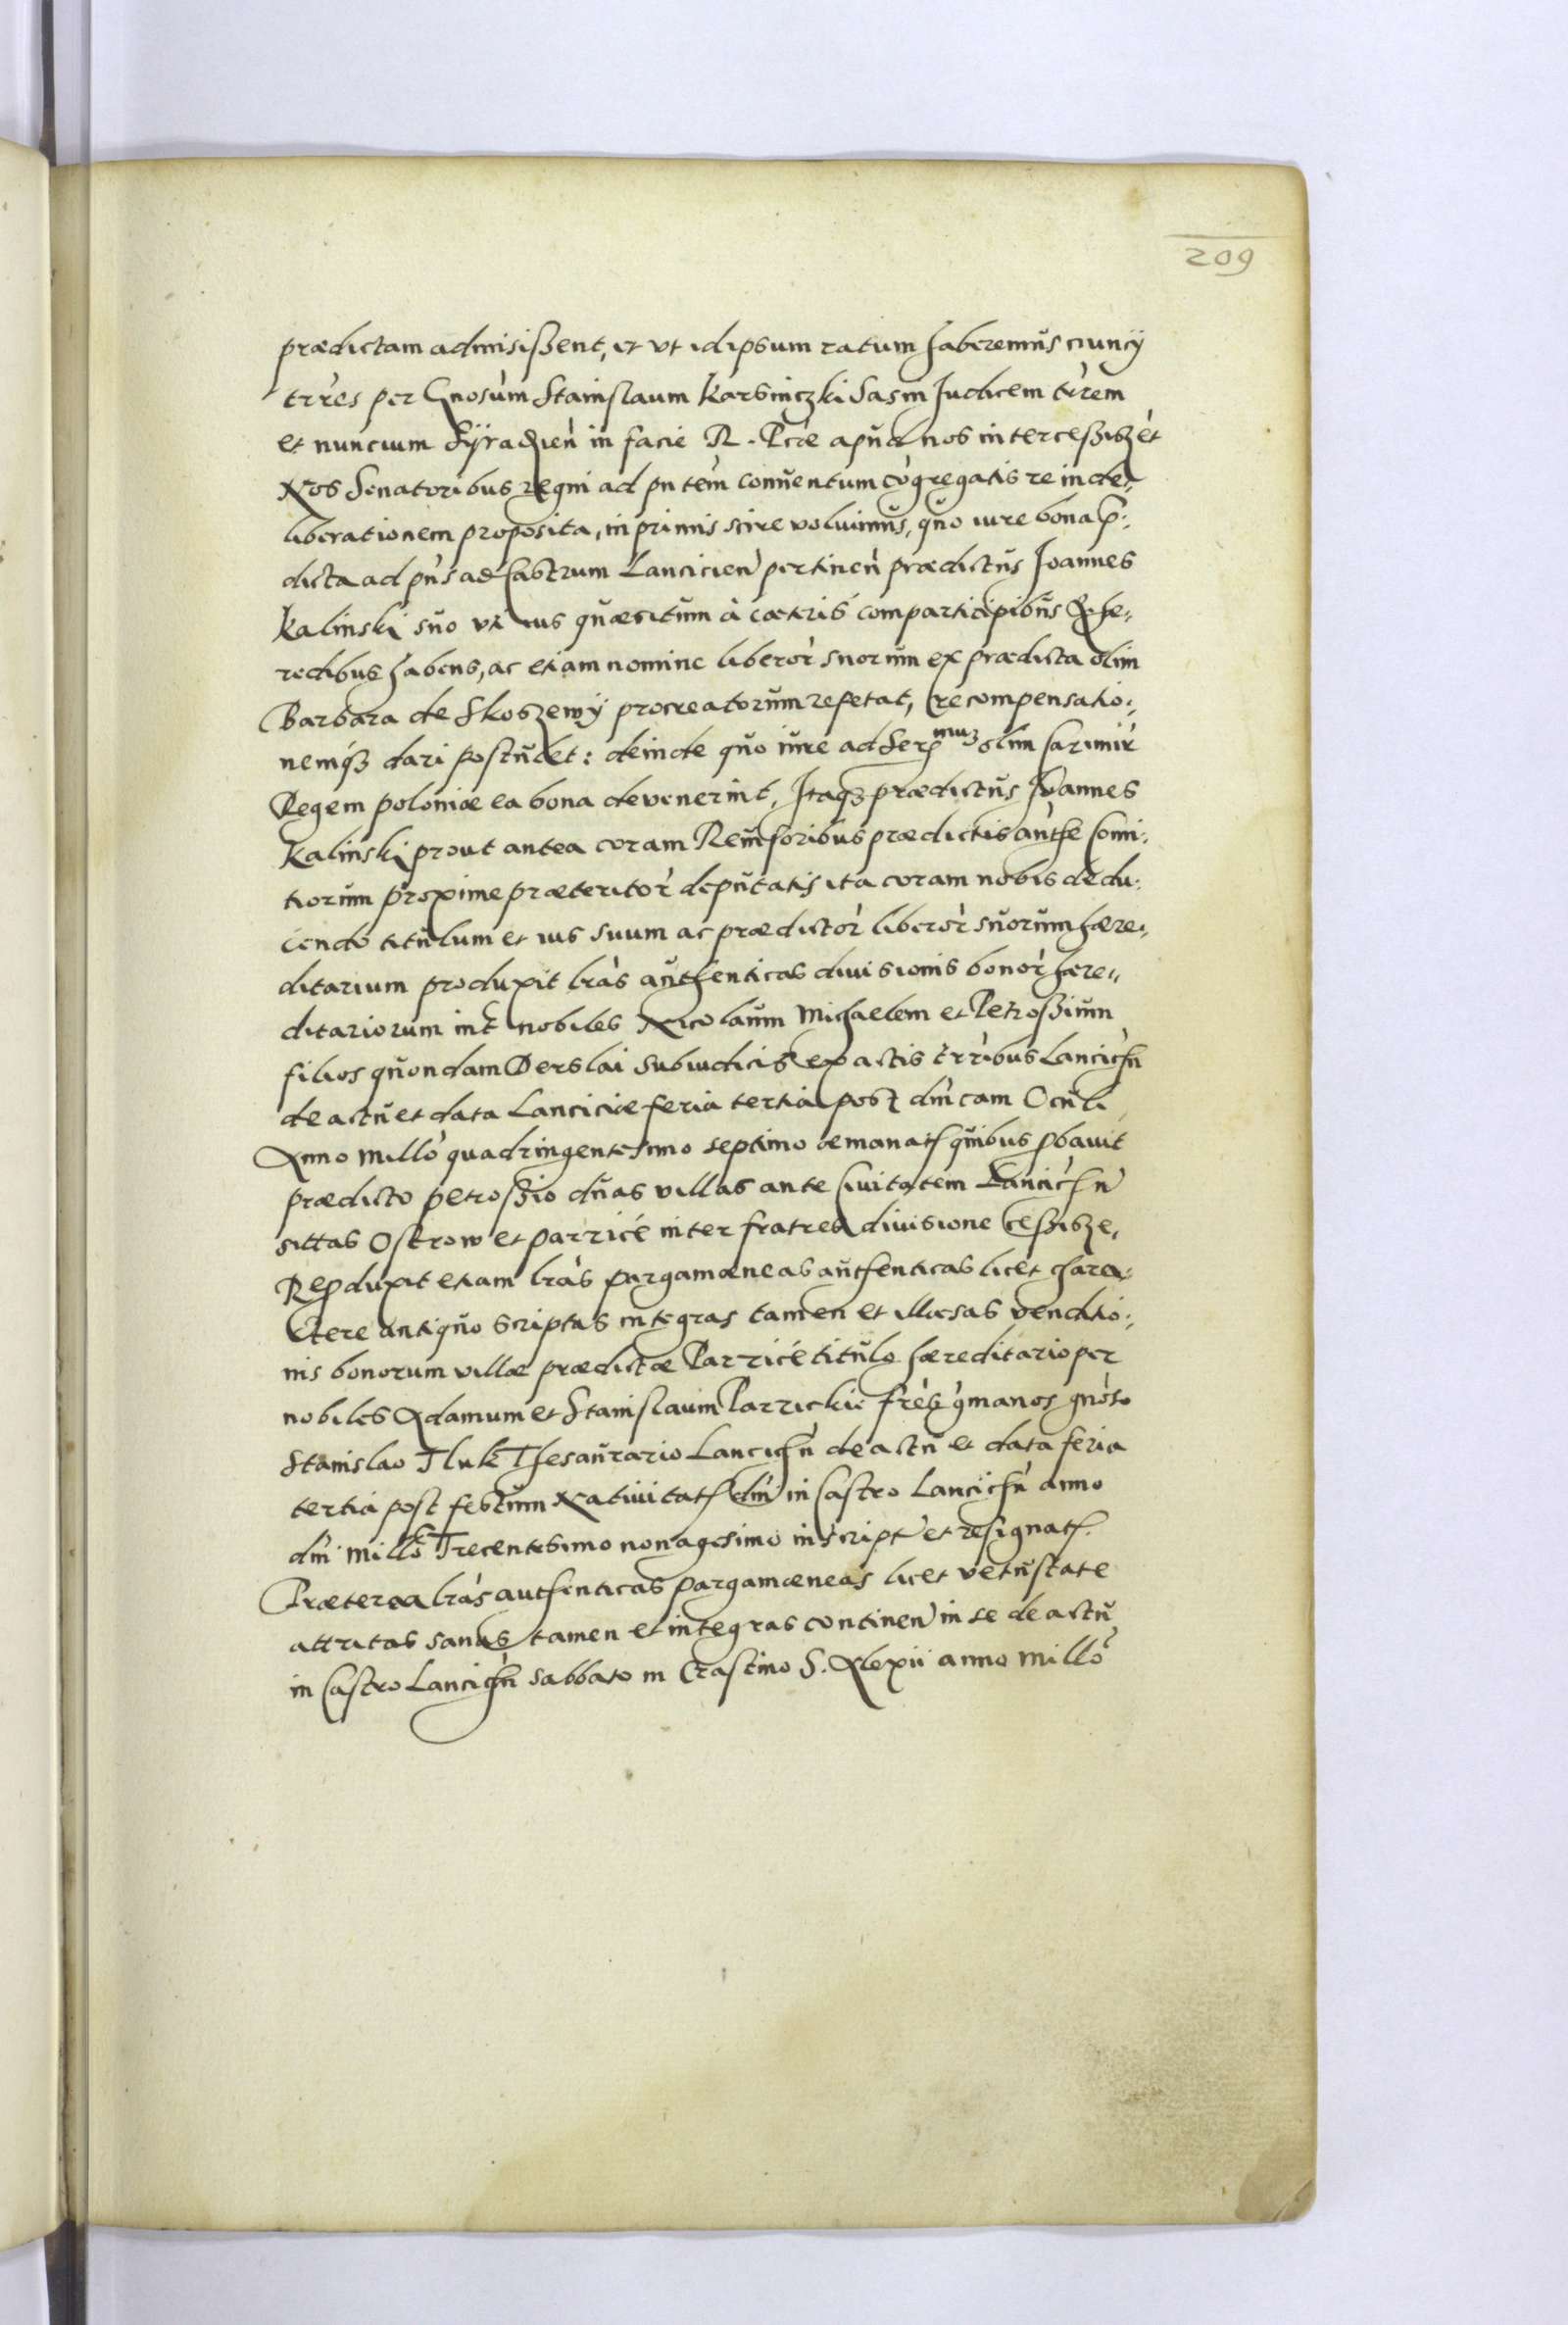 209
prædictam admisissent, et vt idipsum ratum haberemus nuncÿ
trres per Gnosum Stanislaum Karsniczki Iudicem trrem
et nuncium Syradzien in facie R. Pcæ apud nos intercessiszet
Nos Senatoribus regni ad pntem conuentum cogregatis re in de,
liberationem proposita, inprimis scire voluimus, quo iure bona p:
dicta ad pns ad Castrum Lancicien pertinen prædictus Joannes
Kalinski suo vt ius quæsitum à cæteris comparticipibus & he,
redibus habens, ac etiam nomine liberor suorum ex prædicta olim
Barbara de Skoszewÿ procreatorum repetat, recompensatio:
nemq dari postulet: deinde quo iure ad Ser mum olim Cazimir
Regem poloniæ ea bona devenerint, Itaq prædictus Joannes
Kalinski prout antea coram Reuisoribus prædictis authe Comi:
tiorum proxime præteritor deputatis ita coram nobis dedu:
cendo titulum et ius suum ac prædictor liberor suorum hære:
ditarium produxit lras authenticas diuisionis bonor hære:
ditariorum int nobiles Nicolaum Michaelem et Petrossium
filios quondam Derslai Subiudicis ex actis trribus Lancichn
de actu et data Lanciciæ feria tertia post dnicam Oculi
Anno millo quadringentesimo septimo æmanat quibus pbauit
prædicto petrossio duas villas ante Ciuitatem Lancichn
sittas Ostrow et parzice inter fratres diuisione cessisze,
Repduxit etiam lras pargamæneas authenticas licet chara:
ctere antiquo scriptas integras tamen et illæsas venditio:
nis bonorum villæ prædictæ Parzice titulo hæreditario per
nobiles Adamum et Stanislaum Parzickie fres gmanos gnoso
Stanislao Tluk Thesaurario Lancichn de actu et data feria
tertia post festum Natiuitat dni in Castro Lancichn anno
dni millo Trecentesimo nonagesimo inscript et resignat.
Præterea lras authenticas pargamæneas licet vetustate
attritas sanas tamen et integras continen in se de actu
in Castro Lancichn sabbato in Crastino S. Alexii anno millo